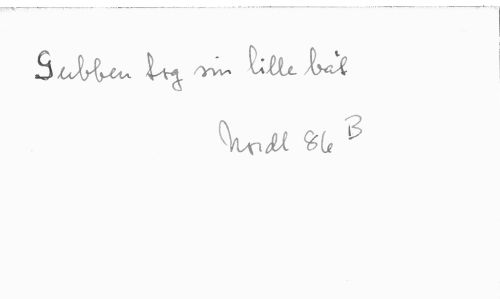 Gubben tog sin lille båt
Nordl 86 B